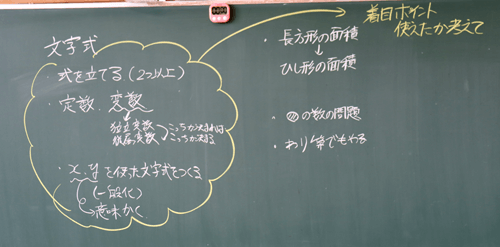 文字式
・式を立てる(2つ以上)
・定数、変数
独立変数
従属変数
こっちが決まれば
こっちが決まる
・x、yを使った文字式をつくる
(一般化)
→意味かく
着目ポイント
使えたか考えて
・長方形の面積
↓
ひし形の面積
・の数の問題
・わり算でもやる